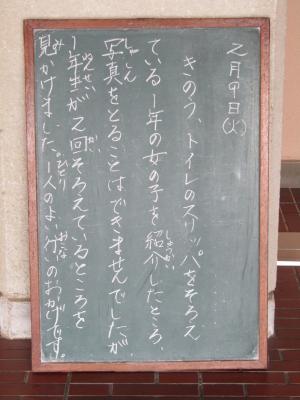 2月9日(火)
きのう、トイレのスリッパをそろえ
ている1年の女の子を紹介したところ、
写真をとることはできませんでしたが、
1年生が2回そろえているところを
見かけました。1人のよい行いのおかげです。